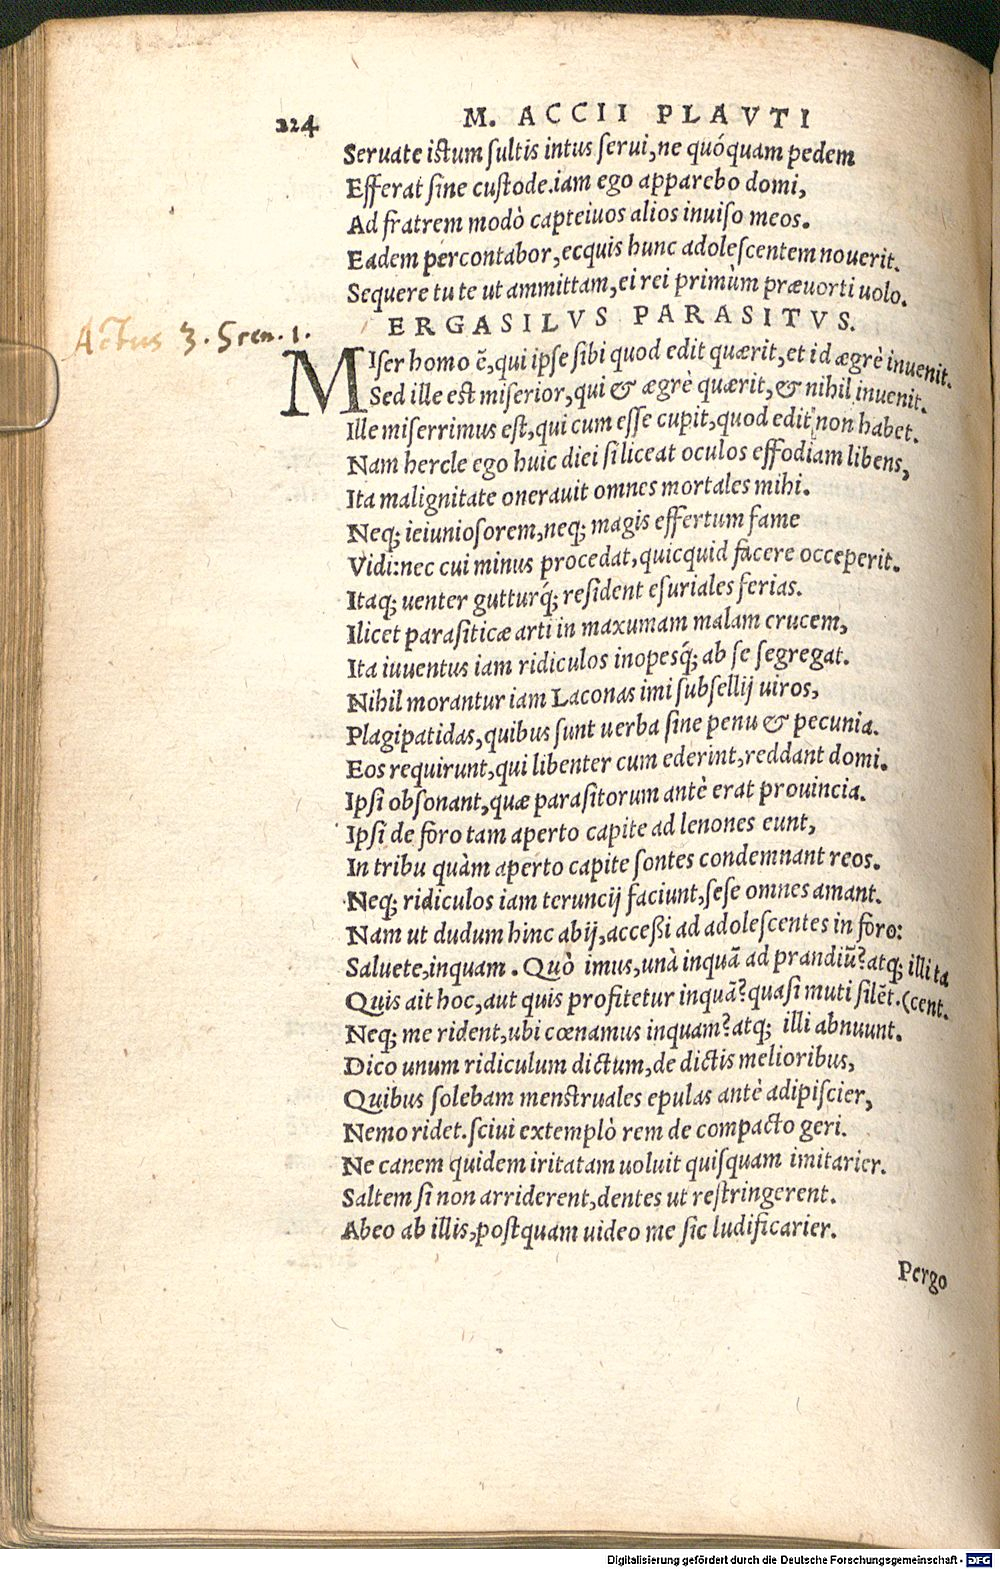 224 M. ACCII PLAVTI
Seruate istum sultis intus serui, ne quóquam pedem
Efferat sine custode. iam ego apparebo domi,
Ad fratrem modò capteiuos alios inuiso meos.
Eadem percontabor, ecquis hunc adolescentem nouerit.
Sequere tu te ut ammittam, ei rei primùm præuorti uolo.
ERGASILVS PARASITVS.
Actus 3. Scen. 1.
MIser homo ē, qui ipse sibi quod edit quærit, et id ægrè inuenit.
Sed ille est miserior, qui & ægrè quærit, & nihil inuenit.
Ille miserrimus est, qui cum esse cupit, quod edit non habet.
Nam hercle ego huic diei si liceat oculos effodiam libens,
Ita malignitate onerauit omnes mortales mihi.
Neq; ieiuniosorem, neq; magis effertum fame
Vidi: nec cui minus procedat, quicquid facere occeperit.
Itaq; uenter gutturq́; resident esuriales ferias.
Ilicet parasiticæ arti in maxumam malam crucem,
Ita iuuentus iam ridiculos inopesq́; ab se segregat.
Nihil morantur iam Laconas imi subsellij uiros,
Plagipatidas, quibus sunt uerba sine penu & pecunia.
Eos requirunt, qui libenter cum ederint, reddant domi.
Ipsi obsonant, quæ parasitorum antè erat prouincia.
Ipsi de foro tam aperto capite ad lenones eunt,
In tribu quàm aperto capite sontes condemnant reos.
Neq; ridiculos iam teruncij faciunt, sese omnes amant.
Nam ut dudum hinc abij, accessi ad adolescentes in foro:
Saluete, inquam. Quò imus, unà inquā ad prandiū? atq; illi ta
Quis ait hoc, aut quis profitetur inquā? quasi muti silēt. (cent.
Neq; me rident, ubi cœnamus inquam? atq; illi abnuunt.
Dico unum ridiculum dictum, de dictis melioribus,
Quibus solebam menstruales epulas antè adipiscier,
Nemo ridet. sciui extemplò rem de compacto geri.
Ne canem quidem iritatam uoluit quisquam imitarier.
Saltem si non arriderent, dentes ut restringerent.
Abeo ab illis, postquam uideo me sic ludificarier.
Pergo
Digitalisierung gefördert durch die Deutsche Forschungsgemeinschaft - DFG